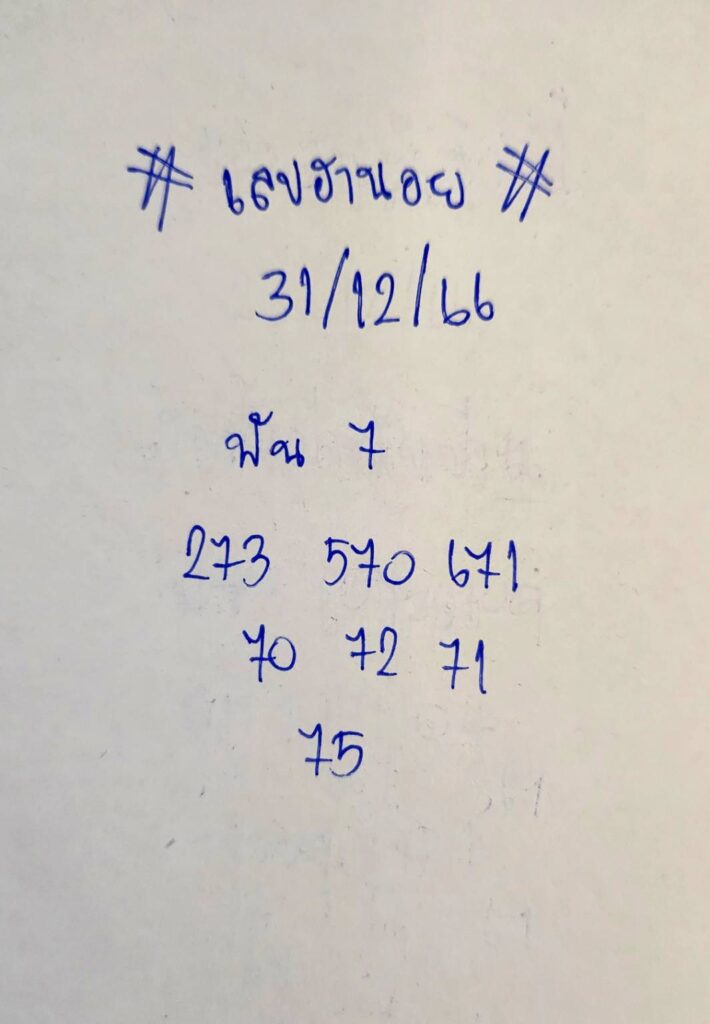 # เลขฮานอย #
31/12/66
ฟัน 7
273 570 671
70 72 71
75